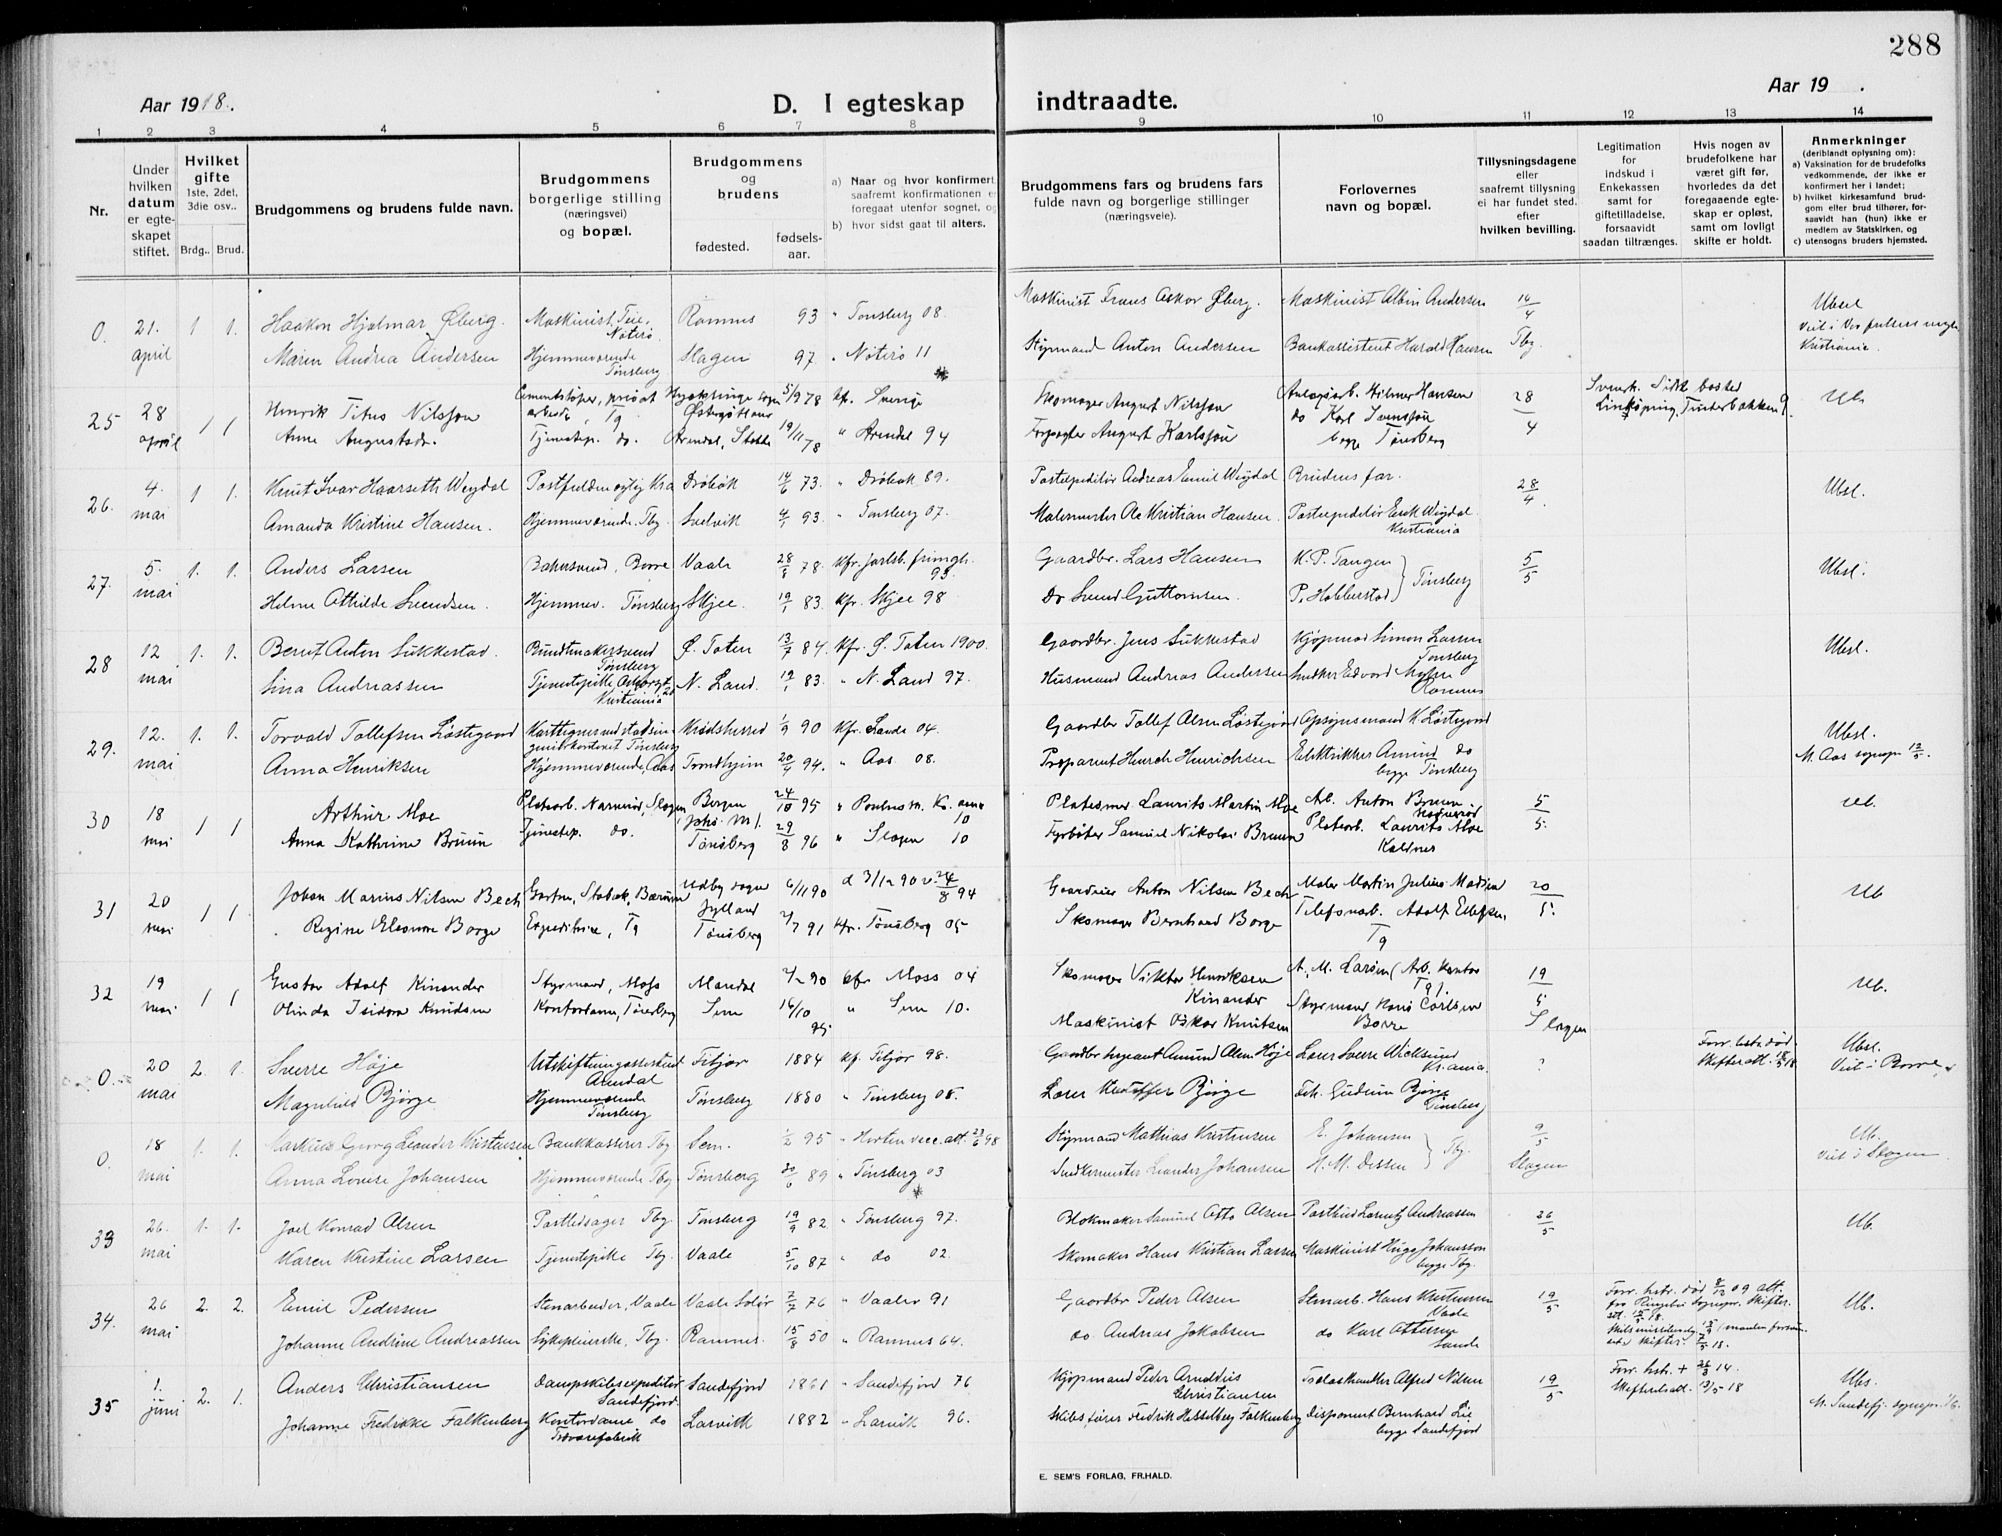 288
Aar 1918.
D. I egteskap
indtraadte.
Aar 19 .
1 2 3 4 5 6 7 8 9 10 11 12 13 14
Nr.
Under hvilken datum er egteskapet stiftet.
Hvilket gifte
1ste, 2det, 3die osv..
Brdg.. Brud.
Brudgommens og brudens fulde navn.
Brudgommens borgerlige stilling (næringsvei) og bopæl.
Brudgommens og brudens
fødested.
fødselsaar.
a) Naar og hvor konfirmert,
saafremt konfirmationen e
foregaat utenfor sognet, og
b) hvor sidst gaat til alters.
Brudgommens fars og brudens fars
fulde navn og borgerlige stillinger
(næringsveie).
Forlovernes
navn og bopæl.
Tillysningsdagene
eller
saafremt tillysning
ei har fundet sted.
efter
hvilken bevilling.
Legitimation
for
indskud i
Enkekassen
samt for
giftetilladelse,
forsaavidt
saadan tiltrænges.
Hvis nogen av
brudefolkene har
været gift før,
hvorledes da det
foregaaende egteskap er opløst,
samt om lovligt
skifte er holdt.
Anmerkninger
(deriblandt oplysning om):
a) Vaksination for de brudefolks
vedkommende, der ikke er
konfirmert her i landet;
b) hvilket kirkesamfund brudgom eller brud tilhører, forsaavidt han (hun) ikke er
medlem av Statskirken, og
c) utensogns bruders hjemsted.
0. 21. april 1 1. Haakon Hjalmar Øberg. Maskinist, Teie, Nøterø Ramnes 93 " Tønsberg 08. Maskinist Frans Oskar Øberg. Maskinist Albin Andersen 14/4 Ubsl
Maren Andrea Andersen Hjemmeværende Tønsberg Slagen 97. " Nøterø 11 Styrmand Anton Andersen Bankassistent Harald Hansen Tbg. Kristiania.
25 28 april 1 1 Henrik Titus Nilsson Cementstøper, Tg Østergötland 5/9 78 kf. Sverige Skomager August Nilsson Hilmer Hansen 28/4 Linköping, Ub.
Anna Augustsdr. Tjenestep. do. Arendal, Stokke 19/11 78 " Arendal 94 Forpagter August Karlsson do Karl Svensson begge Tønsberg
26. 4. mai 1 1. Knut Ivar Haarseth Weydal Postfuldmegtig Kra Drøbak 14/6 73. " Drøbak 89. Postexpeditør Andreas Emil Weydal Brudens far. 28/4. Ubsl.
Amanda Kristine Hansen. Hjemmeværende. Tbg. Svelvik 4/1 93. " Tønsberg 07. Malermester Ole Kristian Hansen. Postexpeditør Erik Weydal Kristiania
27. 5. mai 1. 1. Anders Larsen Bakersvend. Borre Vaale 28/8 78. kfr. Jarlsb. frimgh. 93. Gaardbr. Lars Hansen K. P. Tangen 5/5 Ubsl.
Helene Othilde Svendsen. Hjemmev. Tønsberg Skjee. 19/1 83. kfr. Skjee 98 Do Svend Guttormsen. P. Hobberstad Tønsberg
28 12 mai 1. 1. Bernt Anton Sukkestad. Bundtmakersvend Tønsberg Ø. Toten 13/7 84. kfr. Ø. Toten 1900. Gaardbr. Jens Sukkestad Kjøpmand Simon Larsen Tønsberg Ubsl.
Lina Andreassen Tjenestepike Kristiania N. Land. 19/1 83. " N. Land 97. Husmand Andreas Andersen Snedker Edvard Ramnes
29. 12. mai 1. 1. Torvald Tollefsen Løstegaard Tønsberg Krødsherred 1/9 90 kfr. Sande 04. Gaardbr Tollef Olsen Løstegaard Opsynsmand K Løstegaard Ubsl.
Anna Henriksen Hjemmeværende, Aas Trondhjem 20/4 94. " Aas 08. Henrichsen Elektriker Amund do begge Tønsberg M. Aas sognepr. 12/5.
30 18 mai 1 1 Arthur Moe Platearb. Slagen Bergen Johs. M. 24/10 95 10 Platesmed Laurits Martin Moe Arb. Anton Bruun 5/5. Ub.
Anna Kathrine Bruun Tjenestep. do. Tønsberg 29/8 96 " Slagen 10 Fyrbøter Samuel Nikolai Bruun Platearb. Laurits Moe Kaldnes
31 20 mai 1 1 Johan Marius Nilsen Bech Gartner, Stabæk, Bærum Udby sogn Jylland 6/11 90 d 3/12 90 v. 24/8 94 Gaardeier Anton Nilsen Bech Maler Martin Julius Madsen 20/5. Ub
Regine Eleonore Borge Expeditrice, Tg Tønsberg 2/7 91 kfr. Tønsberg 05 Skomager Bernhard Borge Telefonarb. Adolf Ellefsen Tg
32 19 mai 1 1 Gustav Adolf Kinander Styrmand, Moss 2/2 90 kfr Moss 04 Skomager Viktor Henriksen Kinander A. M. Larsen (Arb. kontor Tg). 19/5 Slagen Ub.
Olinda Isidora Knudsen Kontordame, Tønsberg Sem 16/10 95 " Sem 10. Maskinist Oskar Knutsen Styrmand Hans Carlsen Borre
0. 20 mai 2. 1. Sverre Høje Utskiftningsassistent Arendal Fitjar 1884 kf. Fitjar 98. Gaardbr sergeant Amund Olsen Høje Sverre Kr.ania. ? Forr. hstr. død. Skifteratt. 18/5 18. Ubsl. Viet i Borre
Magnhild Bjørge Hjemmeværende Tønsberg Tønsberg 1880 " Tønsberg 08. Lærer Kristoffer Bjørge Frk. Gudrun Bjørge Tønsberg
0. 18 mai 1. 1. Markus Georg Leander Kristensen Bankkasserer Tbg Sem. 1/2 95 " Horten vacc. att. 23/6 98 Styrmand Mathias Kristensen E. Johansen 9/5 Slagen Ub. Viet i Slagen
Anna Lovise Johansen Hjemmeværende Tbg Tønsberg 30/6 89 " Tønsberg 03 Snedkermester Leander Johansen M. M. Dessen Tbg.
33 26. mai 1. 1. Joel Konrad Olsen Postledsager Tbg Tønsberg 19/9 82 " Tønsberg 97. Blokmaker Samuel Otto Olsen Postbud Lorentz Andreassen 26/5 Ub.
Karen Kristine Larsen Tjenestepike Tbg. Vaale 5/10 87 " do 02. Skomaker Hans Kristian Larsen Maskinist Hugo Johansson begge Tbg.
34. 26 mai 2. 2. Emil Pedersen Stenarbeider, Vaale Vaaler Solør 7/7 76 " Vaaler 91 Gaardbr Peder Olsen Stenarb. Hans Kristensen Vaale 19/5 Forr. hstr. død 9/12 09 att. fra Ringebu sognepr. Skifteratt. 18. Ub.
Johanne Andrine Andreassen Sykepleierske, Tbg. Ramnes. 15/8 50 " Ramnes 64. do. Andreas Jakobsen do Karl Ottersen Sande
35 1. juni 2. 1. Anders Christiansen Dampskibsexpeditør Sandefjord Sandefjord 1861 " Sandefjord 76 Kjøpmand Peder Arnoldus Christiansen Alfred Nilsen 19/5 Forr. hstr. + 26/3 14. Skifteratt. 13/5 18 Ubs.
Johanne Fredrikke Falkenberg Kontordame do Larvik 1882 " Larvik 96. Skibsfører Fredrik Hesselberg Falkenberg Disponent Bernhard Lie begge Sandefjord M. Sandefj. sognepr. 1/6.
E. SEM'S FORLAG, FR.HALD.